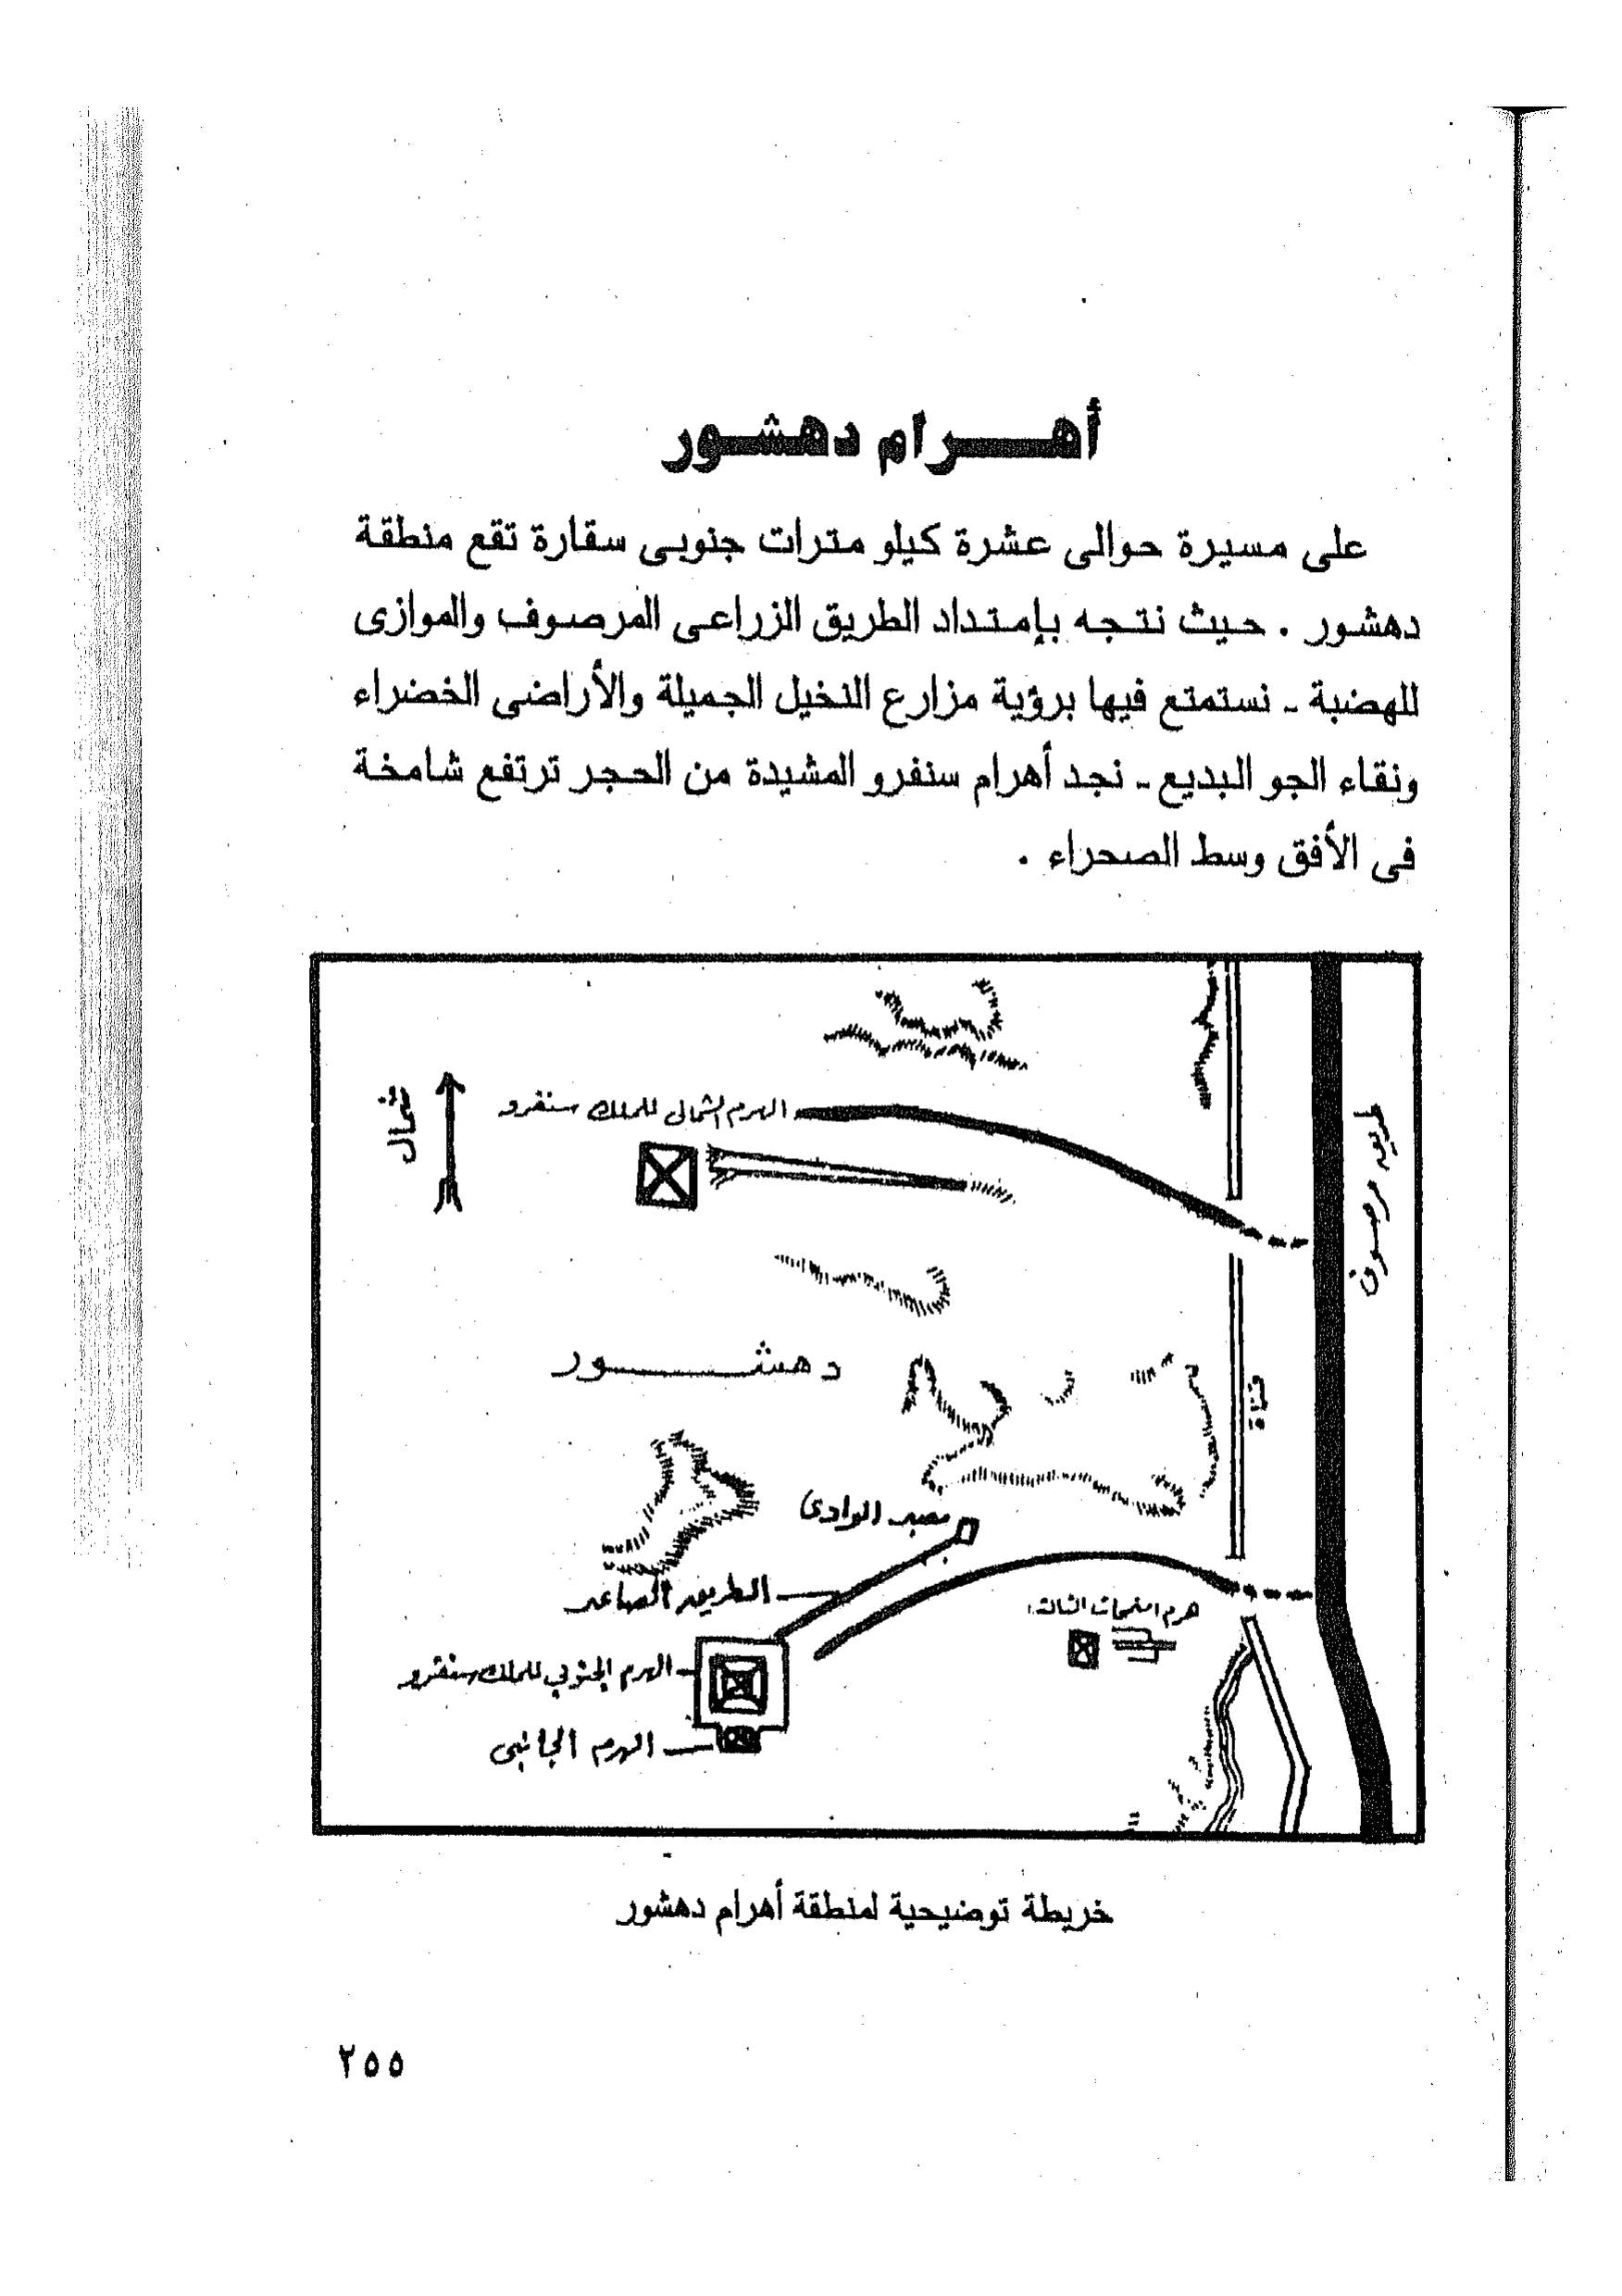 أهـــرام دهشـور
على مسيرة حوالى عشرة كيلو مترات جنوبى سقارة تقع منطقة
دهشور . حيث نتجه بإمتداد الطريق الزراعى المرصوف والموازى
للهضبة ـ نستمتع فيها برؤية مزارع النخيل الجميلة والأراضى الخضراء
ونقاء الجو البديع ـ نجد أهرام سنفرو المشيدة من الحجر ترتفع شامخة
فى الأفق وسط الصحراء .
شمال
الهرم الشمالى للملك سنفرو
طريق مرصوف
دهشـــــور
قناة
معبد الوادى
الطريق الصاعد
هرم امنمحات الثالث
الهرم الجنوبي للملك سنفرو
الهرم الجانبى
خريطة توضيحية لمنطقة أهرام دهشور
٢٥٥